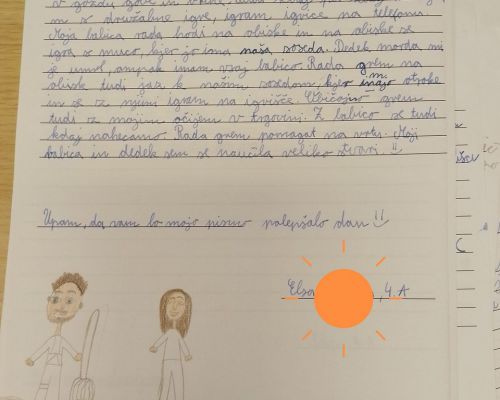 v gozdu
m z družabne igre, igram igrice na telefonu.
Moja babica rada hodi na obiske in na obiske se
igra z muco, kjer jo ima naša soseda. Dedek morda mi
je umrl, ampak imam vsaj babico. Rada grem na
obiske tudi jaz k našim sosedom, kjer imajo otroke
in se z njimi igram na igrišče. Običajno grem
tudi z mojim očijem v trgovini. Z babico se tudi
kdaj nahecamo. Rada grem pomagat na vrtu. Moji
babica in dedek sem se naučila veliko stvari !!
Upam, da vam bo mojo pismo polepšalo dan !!
Elsa , 4. A